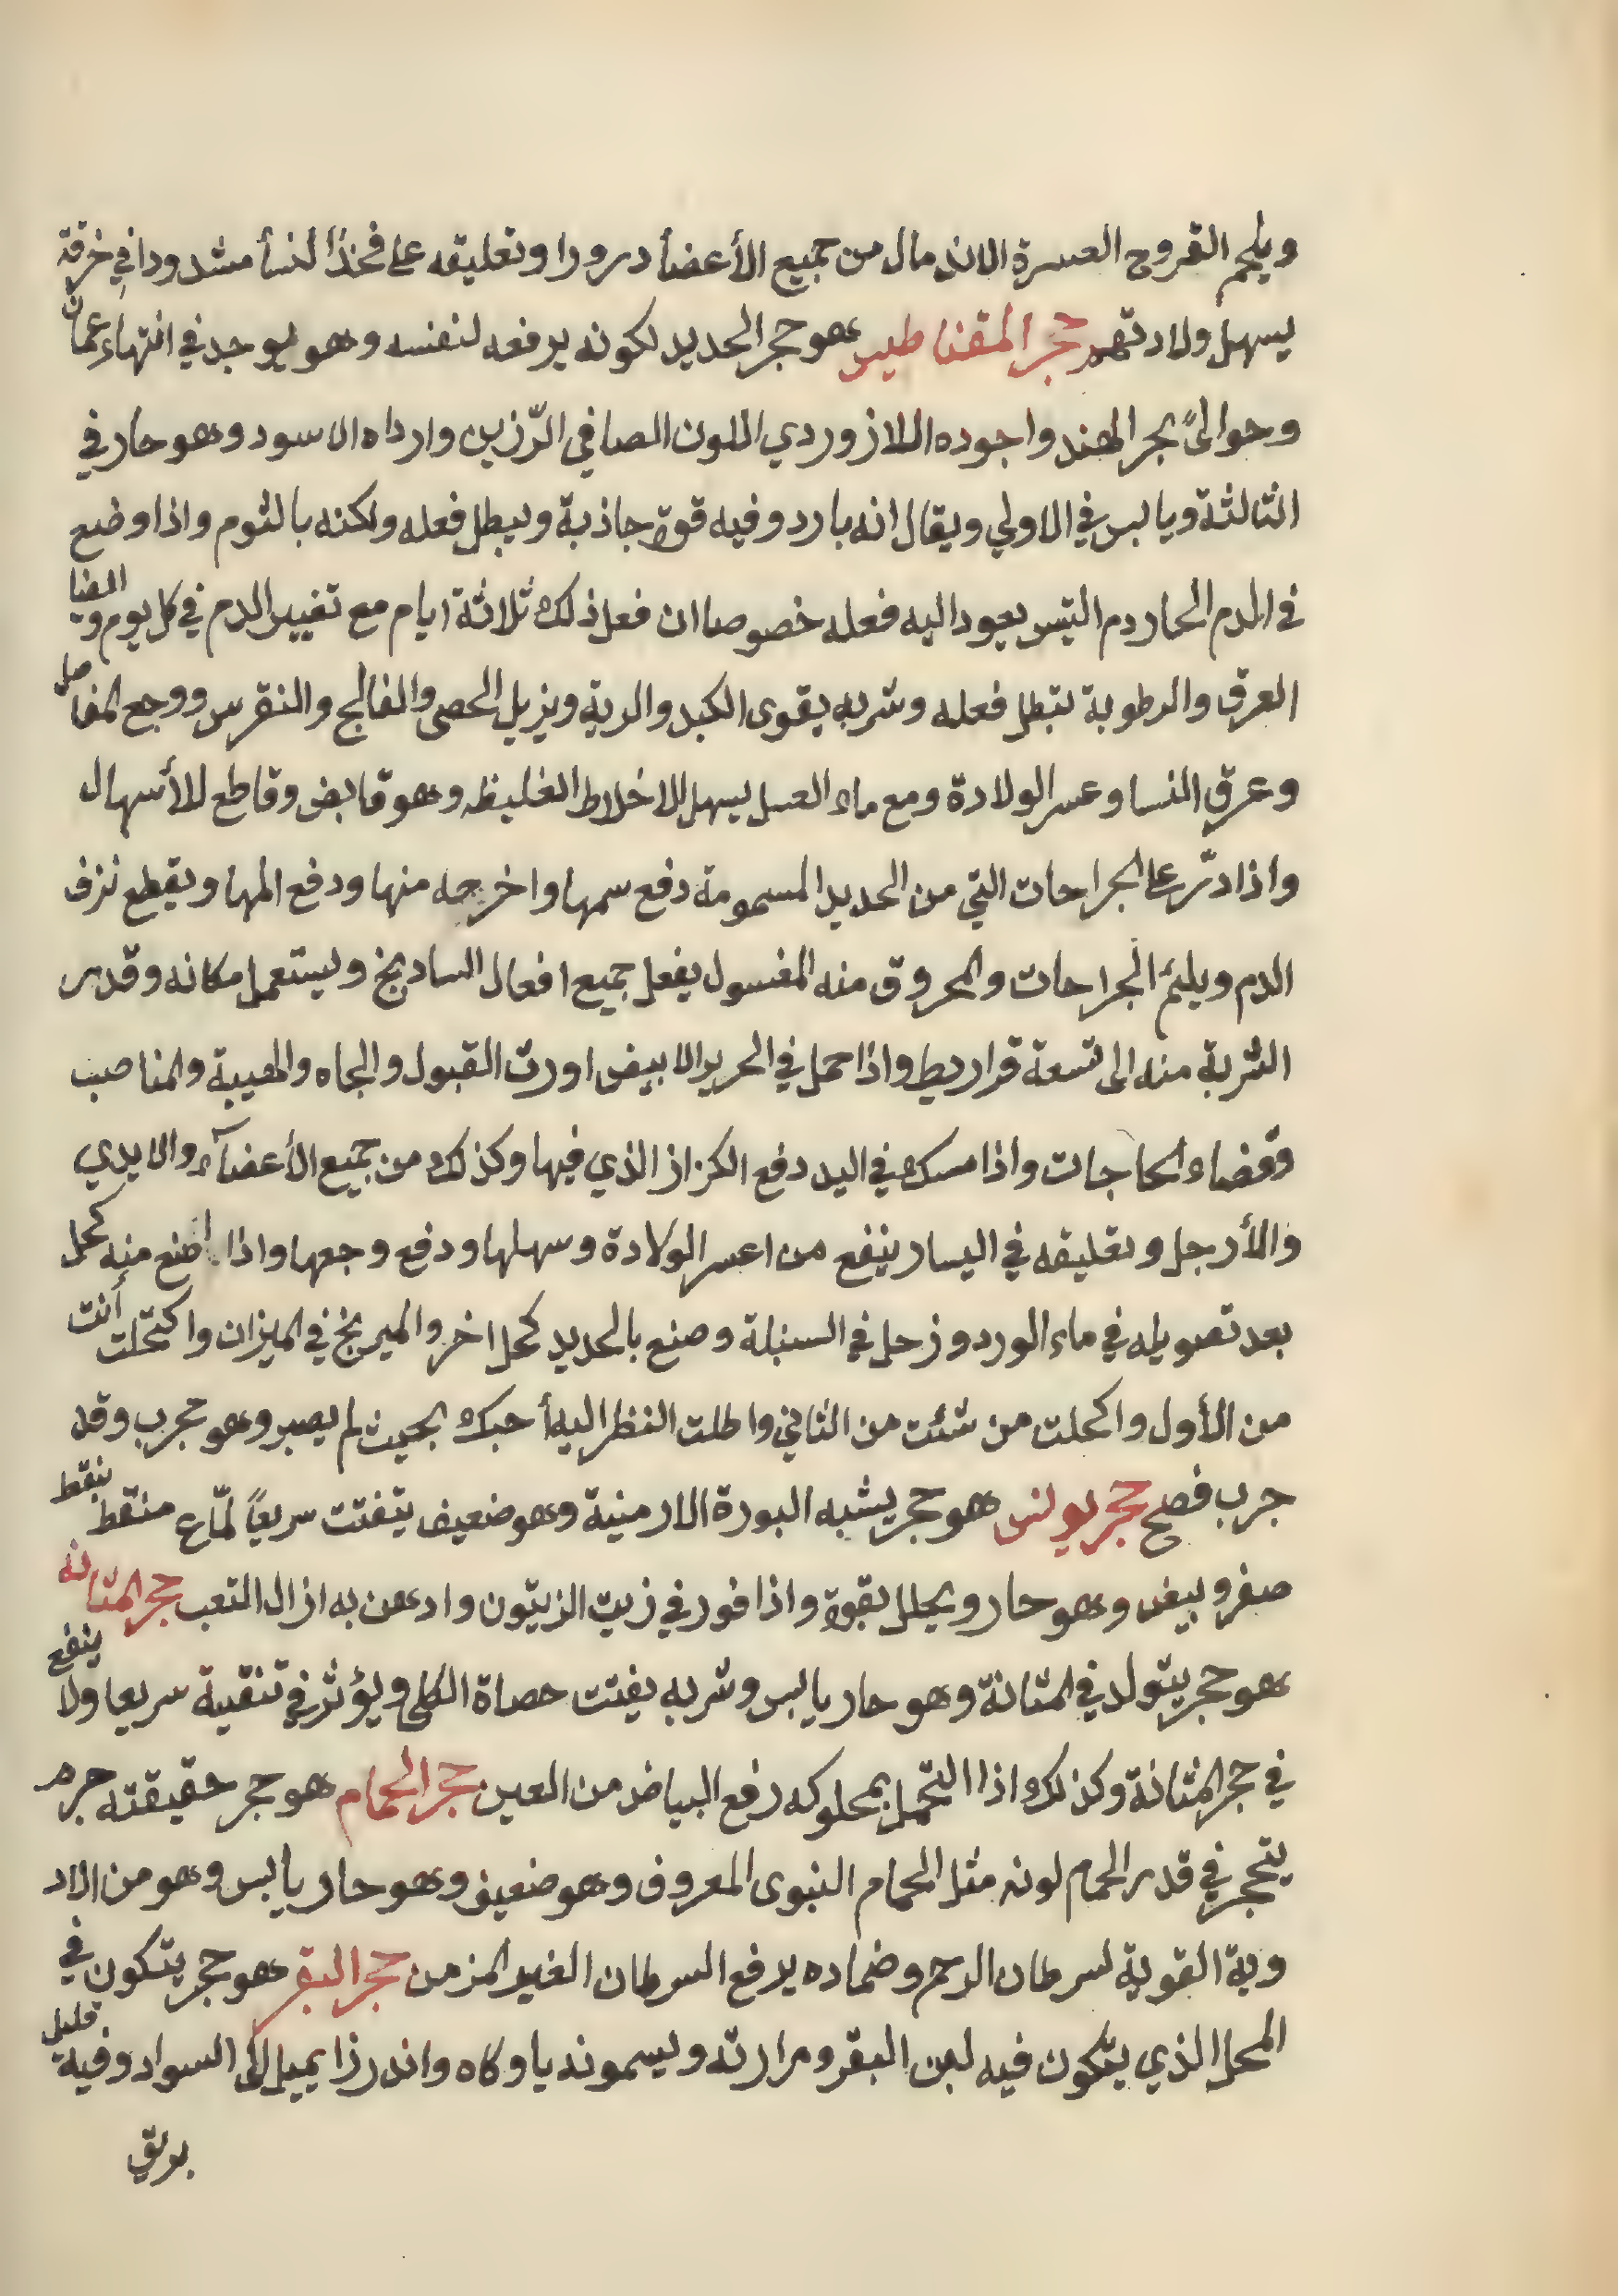 ويلحم القروح العسرة الاندمال من جميع الأعضأ درورا وتعليقه على فخذ النسأ مشدودا في خرقة
يسهل ولادتهم حجر المقناطيس هو حجر الحديد لكونه يرفعه لنفسه وهو يوجد في انتهاء عمان
وحوالى بحر الهند واجوده اللازوردي اللون الصافي الرّزين وارداه الاسود وهو حار في
الثالثة ويابس في الاولي ويقال انه بارد وفيه قوة جاذبة ويبطل فعله ولكنه بالثوم واذا وضع
في الدم الحار دم التيس يعود اليه فعله خصوصا ان فعل ذلك ثلاثة ايام مع تغيير الدم في كل يوم وايضا
العرق والرطوبة تبطل فعله وشربه يقوى الكبد والرية ويزيل الحصى والفالج والنقرس ووجع المفاصل
وعرق النسا وعسر الولادة ومع ماء العسل يسهل الاخلاط الغليظه وهو قابض وقاطع للأسهال
واذا درّ على الجراحات التي من الحديد المسمومة دفع سمها واخرجه منها ودفع المها ويقطع نزف
الدم ويليم الجراحات والمحروق منه المغسول يفعل جميع افعال السادنج ويستعمل مكانه وقدر
الشربة منه الى تسعة قراريط واذا حمل في الحرير الابيض اورث القبول والجاه والهيبة والمناصب
وقضاء الحاجات واذا مسك في اليد دفع الكزاز الذي فيها وكذلك من جميع الأعضآء والايدي
والأرجل وتعليقه في اليسار ينفع من اعسر الولادة وسهلها ودفع وجعها واذا اصنع منه كحل
بعد تصويله في ماء الورد وزحل في السنبلة وصنع بالحديد كحل اخر والميريخ في الميزان واكتحلت أنت
من الأول واكحلت من شئت من الثاني واطلت النظر اليه أحبك بحيث لم يصبر وهو مجرب وقد
جرب فصح حجر يولس هو حجر يشبه البورة الارمنية وهو ضعيف يتفتت سريعاً لمّاع منقط بنقط
صفر وبيض وهو حار ويحلل بقوة واذا فور في زيت الزيتون وادهن به ازال التعب حجر المثانه
هو حجر يتولد في المثانة وهو حار يابس وشربه يفتت حصاة الكلي ويؤثر في تنقية سريعا ولا ينفع
في حجر المثانة وكذلك اذا اكتحل بمحلوكه رفع البياض من العين حجر الحمام هو حجر حقيقته جرم
يتحجر في قدر الحمام لونه مثل الحمام النبوى المعروف وهو ضعيف وهو حار يابس وهو من الاد
وية القوية لسرطان الرحم وضماده يرفع السرطان الغير المزمن حجر البقر هو حجر يتكون في
المحل الذي يتكون فيه لبن البقر ومرارته ويسمونه ياوكاه واندرزا يميل الى السواد وفيه قليل
بريق